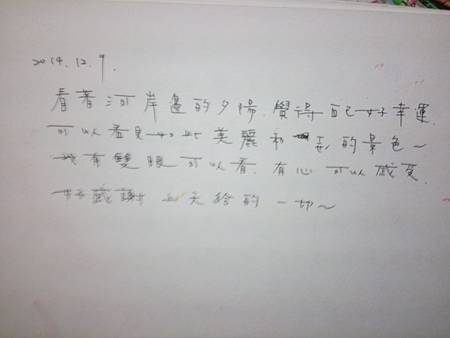 2014.12.7.
看著河岸邊的夕陽.覺得自己好幸運.
可以看見如此美麗和的景色~
我有雙眼可以看.有心可以感受.
好感謝上天給的一切~